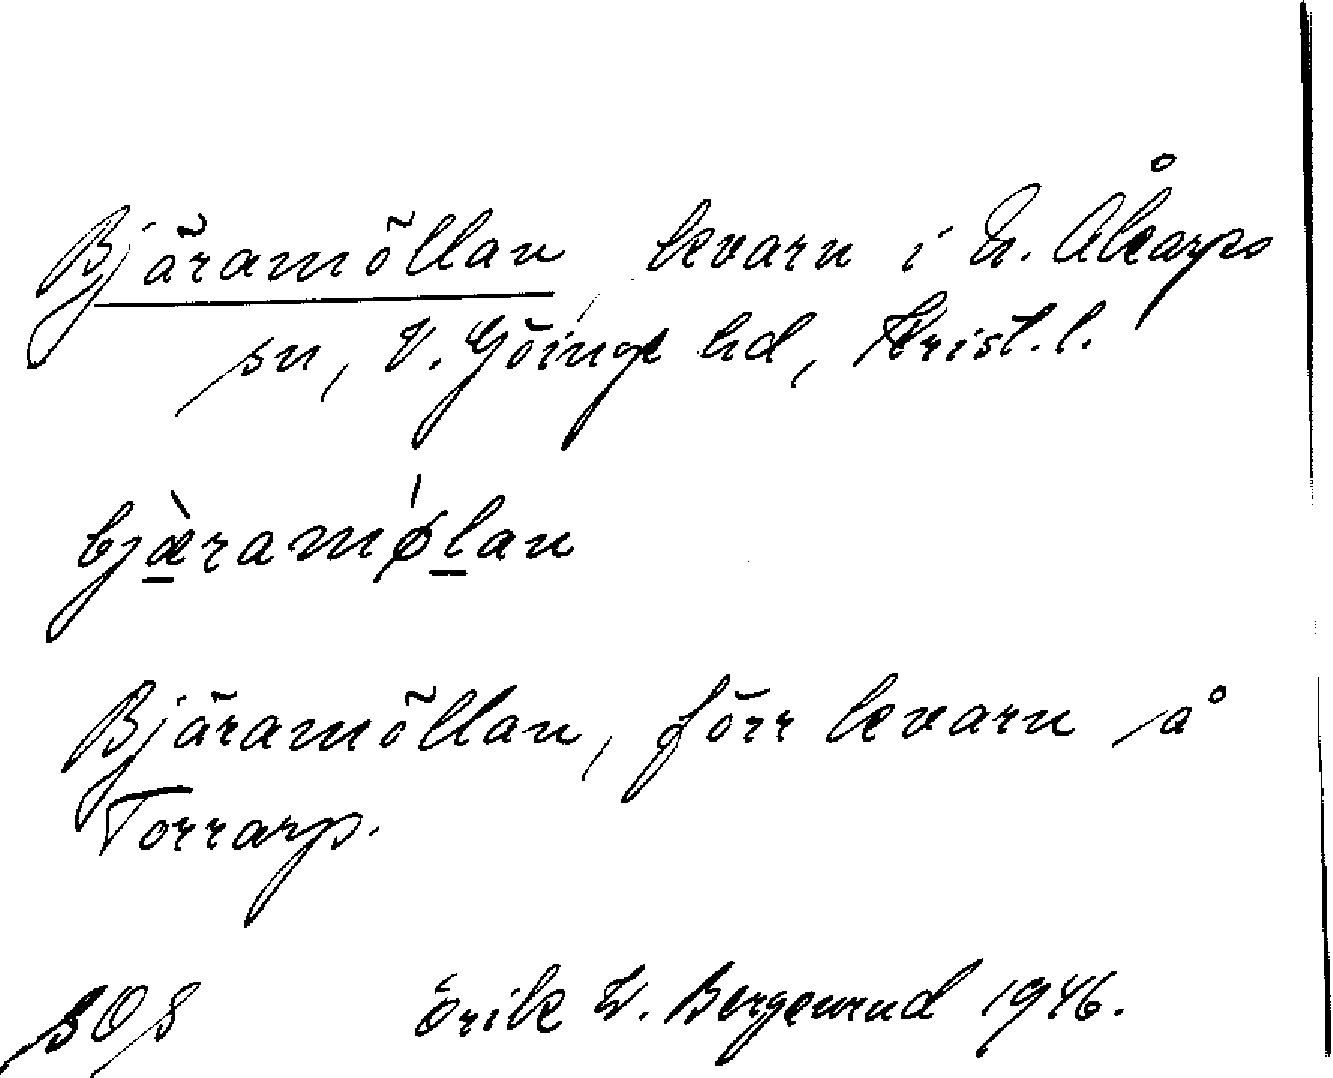 Bjäramöllan, kvarn i N. Åkarps
sn, V. Göinge hd, Krist.l.
bjæ̀ramǿlan
Bjäramöllan, förr kvarn å
Torrarp.
SOS Erik W. Bergenrud 1946.